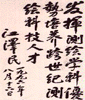 发挥测绘学科优
势培养跨世纪测
绘科技人才
江泽民
八月十六日